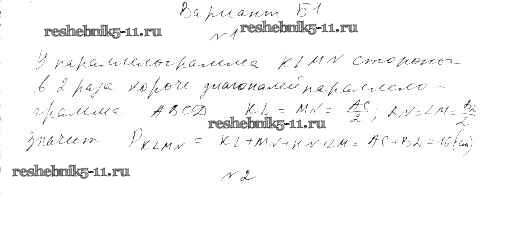 Вариант Б1
reshebnik5-11.ru
reshebnik5-11.ru
№1
У параллелограмма KLMN стороны
в 2 раза короче диагоналей параллело-
грамма ABCD KL = MN = AC/2; KN = LM = BD/2
reshebnik5-11.ru
значит P_KLMN = KL + MN + KN + LM = AC + BD =
reshebnik5-11.ru
№2